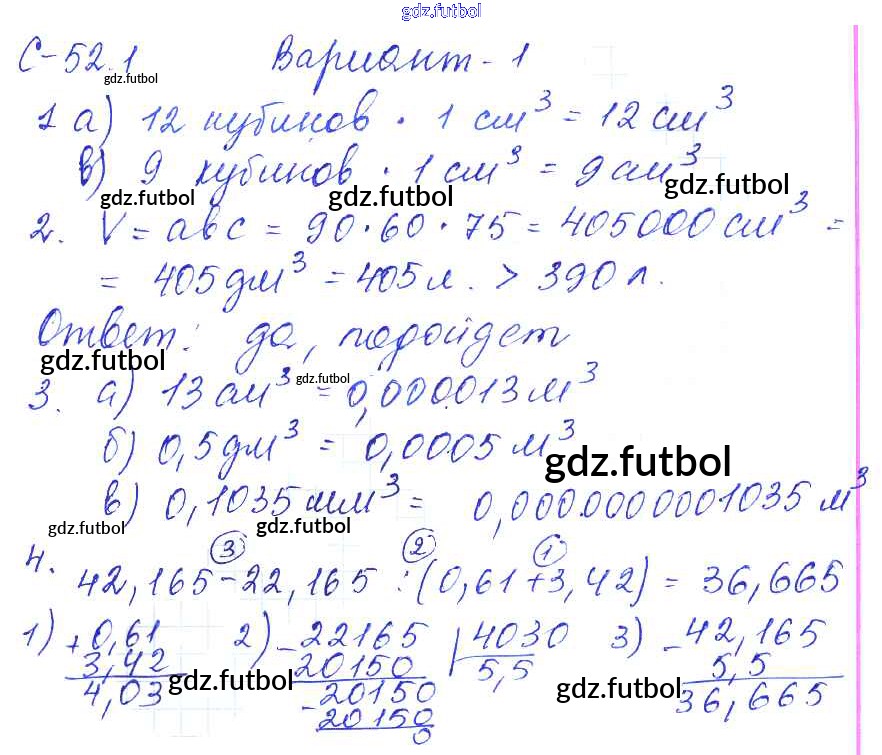 gdz.futbol
С-52.1 Вариант-1
gdz.futbol
1 а) 12 кубиков · 1 см³ = 12 см³
в) 9 кубиков · 1 см³ = 9 см³
gdz.futbol gdz.futbol gdz.futbol
2. V = abc = 90·60·75 = 405000 см³ =
= 405 дм³ = 405 л. > 390 л.
Ответ: да, подойдет
gdz.futbol gdz.futbol
3. а) 13 см³ = 0,000013 м³
б) 0,5 дм³ = 0,0005 м³
gdz.futbol
в) 0,1035 мм³ = 0,0000000001035 м³
gdz.futbol gdz.futbol
③ ② ①
4. 42,165-22,165 : (0,61+3,42) = 36,665
1) +0,61 2) -22165 |4030 3) -42,165
3,42 20150 5,5 5,5
4,03 -20150 36,665
gdz.futbol gdz.futbol
20150
0